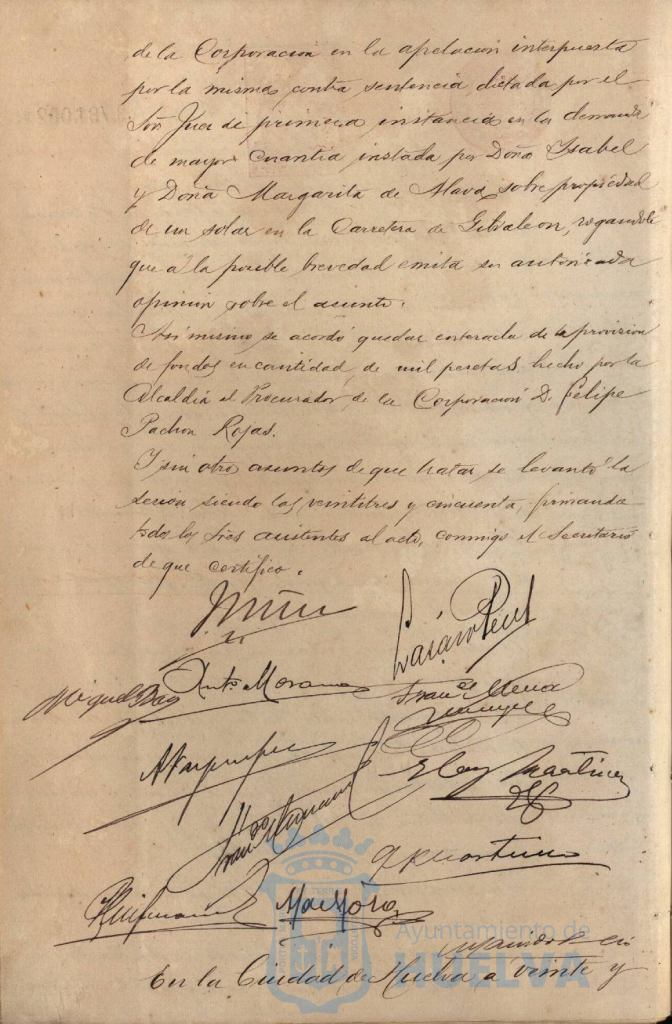 de la Corporacion en la apelacion interpuesta
por la misma contra sentencia dictada por el
Señ Juez de primera instancia en la demanda
de mayor cuantia instada por Doña Isabel
y Doña Margarita de Alava, sobre propiedad
de un solar en la Carretera de Gibraleon, rogandole
que á la posible brevedad emita su autorizada
opinion sobre el asunto.
Asi mismo se acordó quedar enterada de la provision
de fondos en cantidad de mil pesetas hecho por la
Alcaldia al Procurador de la Corporacion D. Felipe
Pachon Rojas.
Y sin otro asuntos de que tratar se levantó la
sesion siendo las veintitres y cincuenta, firmando
todo los Sres asistentes al acto, conmigo el Secretario
de que certifico.
Lázaro
Antº Moreno
Miguel
Franco Mena
Eloy Martinez
Ayuntamiento de
HUELVA
En la Ciudad de Huelva a veinte y